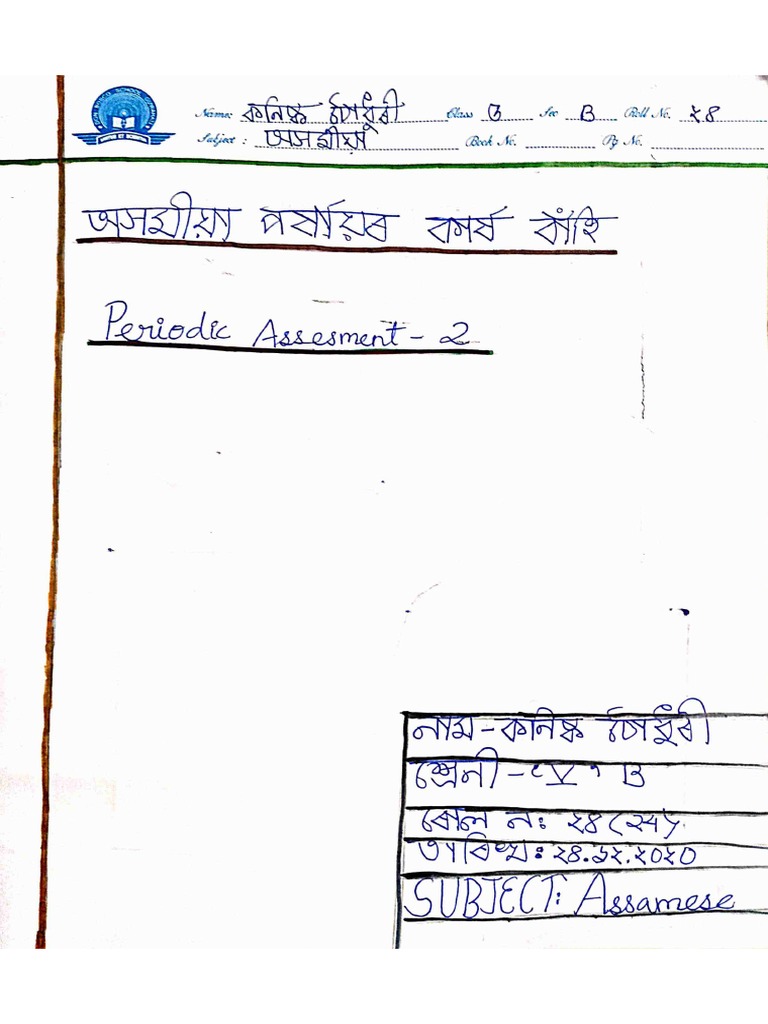 Name: কনিষ্ক চৌধুৰী Class ৫ Sec B Roll No. ২৪
Subject: অসমীয়া Book No. Pg No.
অসমীয়া পৰ্যায়ৰ কাৰ্য বাঁহি
Periodic Assesment - 2
নাম - কনিষ্ক চৌধুৰী
শ্ৰেনী - "V" B
ৰোল নং: ২৪(24)
তাৰিখ: ২৪.১২.২০২০
SUBJECT: Assamese